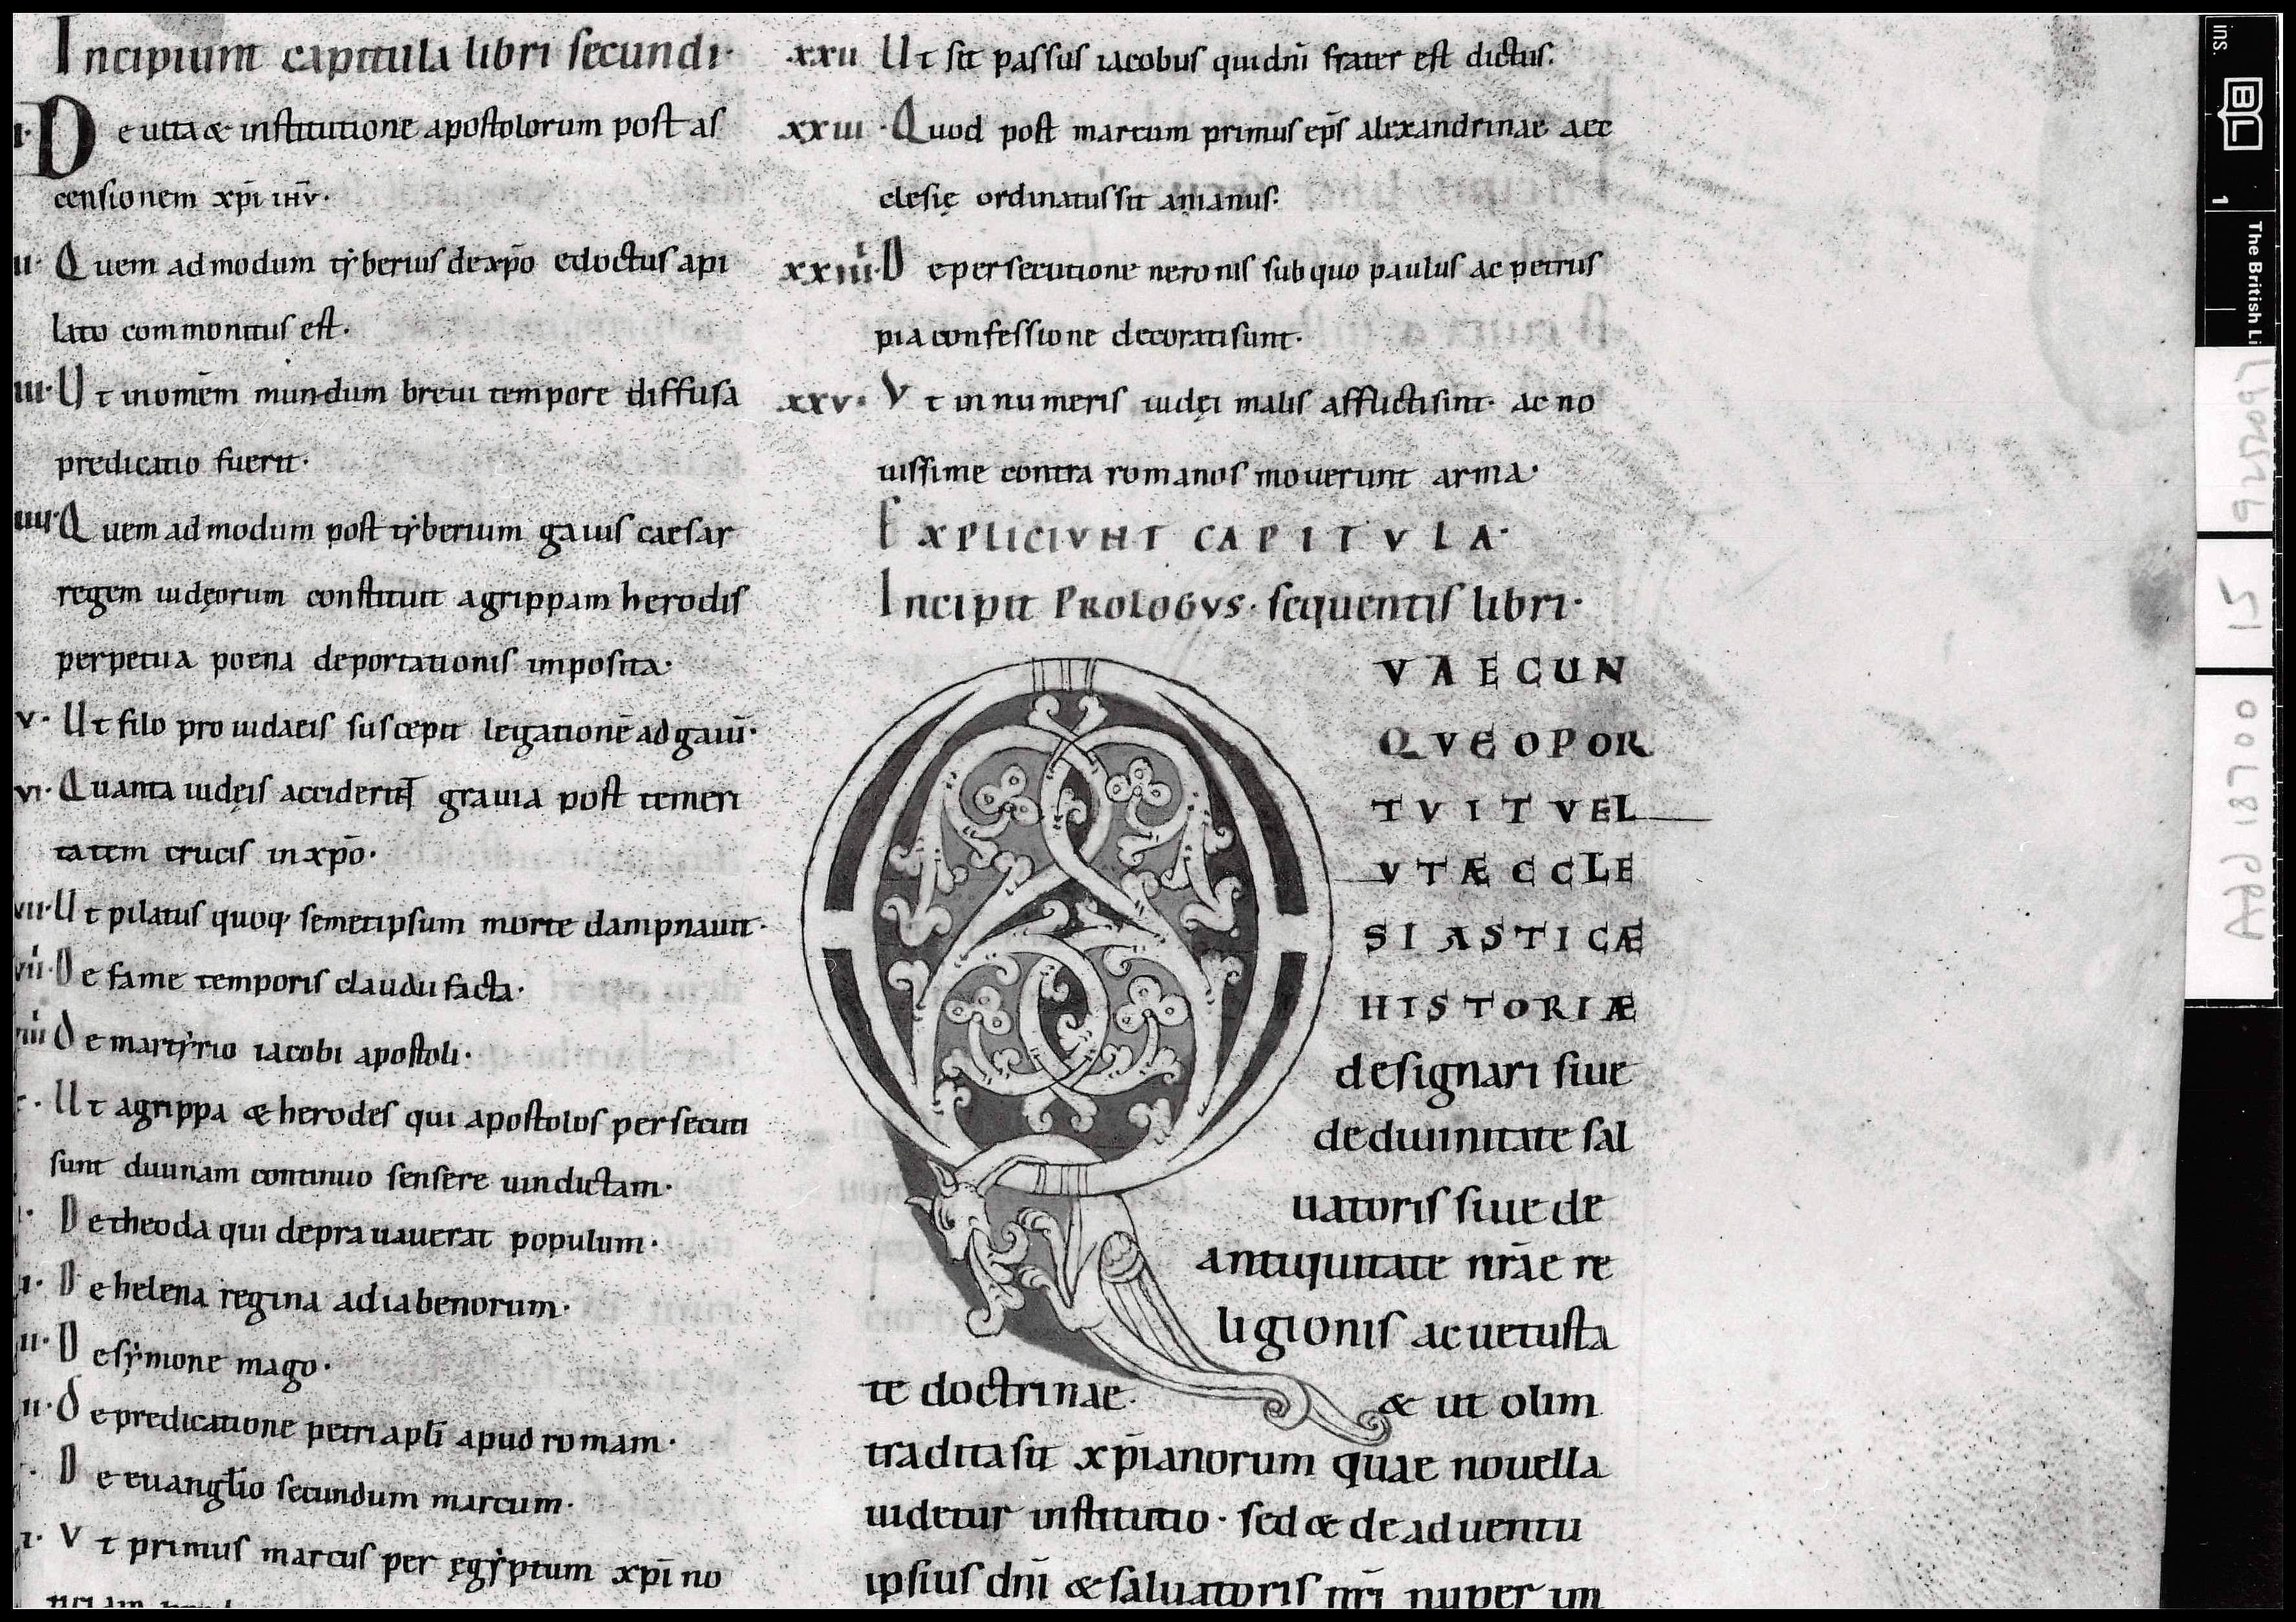 Incipiunt capitula libri secundi·
I· De uita & institutione apostolorum post as
censionem xp̄i ih̄v·
II· Quem admodum tẏberius de xp̄o edoctus a pi
lato commonitus est·
III· Ut in omēm mundum breui tempore diffusa
predicatio fuerit·
IIII· Quem admodum post tẏberium gaius caesar
regem iudęorum constituit agrippam herodis
perpetua poena deportationis imposita·
V· Ut filo pro iudaeis suscepit legationē ad gaiū·
VI· Quanta iudęis acciderint grauia post temeri
tatem crucis in xp̄o·
VII· Ut pilatus quoq; semetipsum morte dampnauit·
VIII· De fame temporis claudii facta·
VIIII De martẏrio iacobi apostoli·
Ut agrippa & herodes qui apostolos persecuti
sunt diuinam continuo sensere uindictam·
I· De theoda qui deprauauerat populum·
I· De helena regina adiabenorum·
II· De sẏmone mago·
II· De predicatione petri apl̄i apud romam·
De euangl̄io secundum marcum·
I· Vt primus marcus per ęgẏptum xp̄i no
XXII Ut sit passus iacobus qui dn̄i frater est dictus·
XXIII· Quod post marcum primus ep̄s alexandrinae aec
clesię ordinatus sit anianus·
XXIIII· De persecutione neronis sub quo paulus ac petrus
pia confessione decorati sunt·
XXV· Vt innumeris iudęi malis afflicti sint· ac no
uissime contra romanos mouerunt arma·
EXPLICIVNT CAPITVLA·
Incipit PROLOGVS· sequentis libri·
QVAECUN
QVEOPOR
TVIT VEL
VT ÆCCLE
SIASTICÆ
HISTORIÆ
designari siue
de diuinitate sal
uatoris siue de
antiquitate nr̄ae re
ligionis ac uetusta
te doctrinae· & ut olim
tradita sit xp̄ianorum quae nouella
uidetur institutio· sed & de aduentu
ipsius dn̄i & saluatoris nr̄i nuper im
ins.
BL
1
The British Li